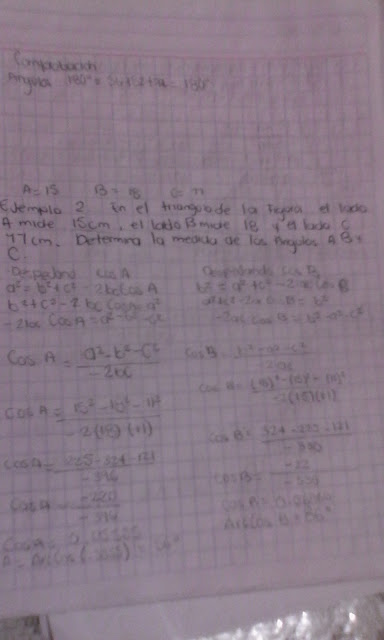 Comprobacion
Angulos 180° = = 180°
A = 15 B = 18 C = 11
Ejemplo 2 En el triangulo de la figura el lado
A mide 15cm, el lado B mide 18 y el lado C
11cm. Determina la medida de los Angulos A B
C.
Despejando Cos A
a² = b² + c² - 2bc Cos A
b² + c² - 2bc Cos A = a²
-2bc Cos A = a² - b² - c²
Cos A = a² - b² - c²
-2bc
Cos A = 15² - 18² - 11²
-2(18)(11)
Cos A = 225 - 324 - 121
-396
Cos A = -220
-396
Cos A = 0.5555
A = Arc Cos
Despejando Cos B
b² = a² + c² - 2ac Cos B
a² + c² - 2ac Cos B = b²
-2ac Cos B = b² - a² - c²
Cos B = b² - a² - c²
-2ac
Cos B = (18)² - (15)² - (11)²
-2(15)(11)
Cos B = 324 - 225 - 121
-330
Cos B = -22
-330
Cos B =
Arc Cos B = 86°